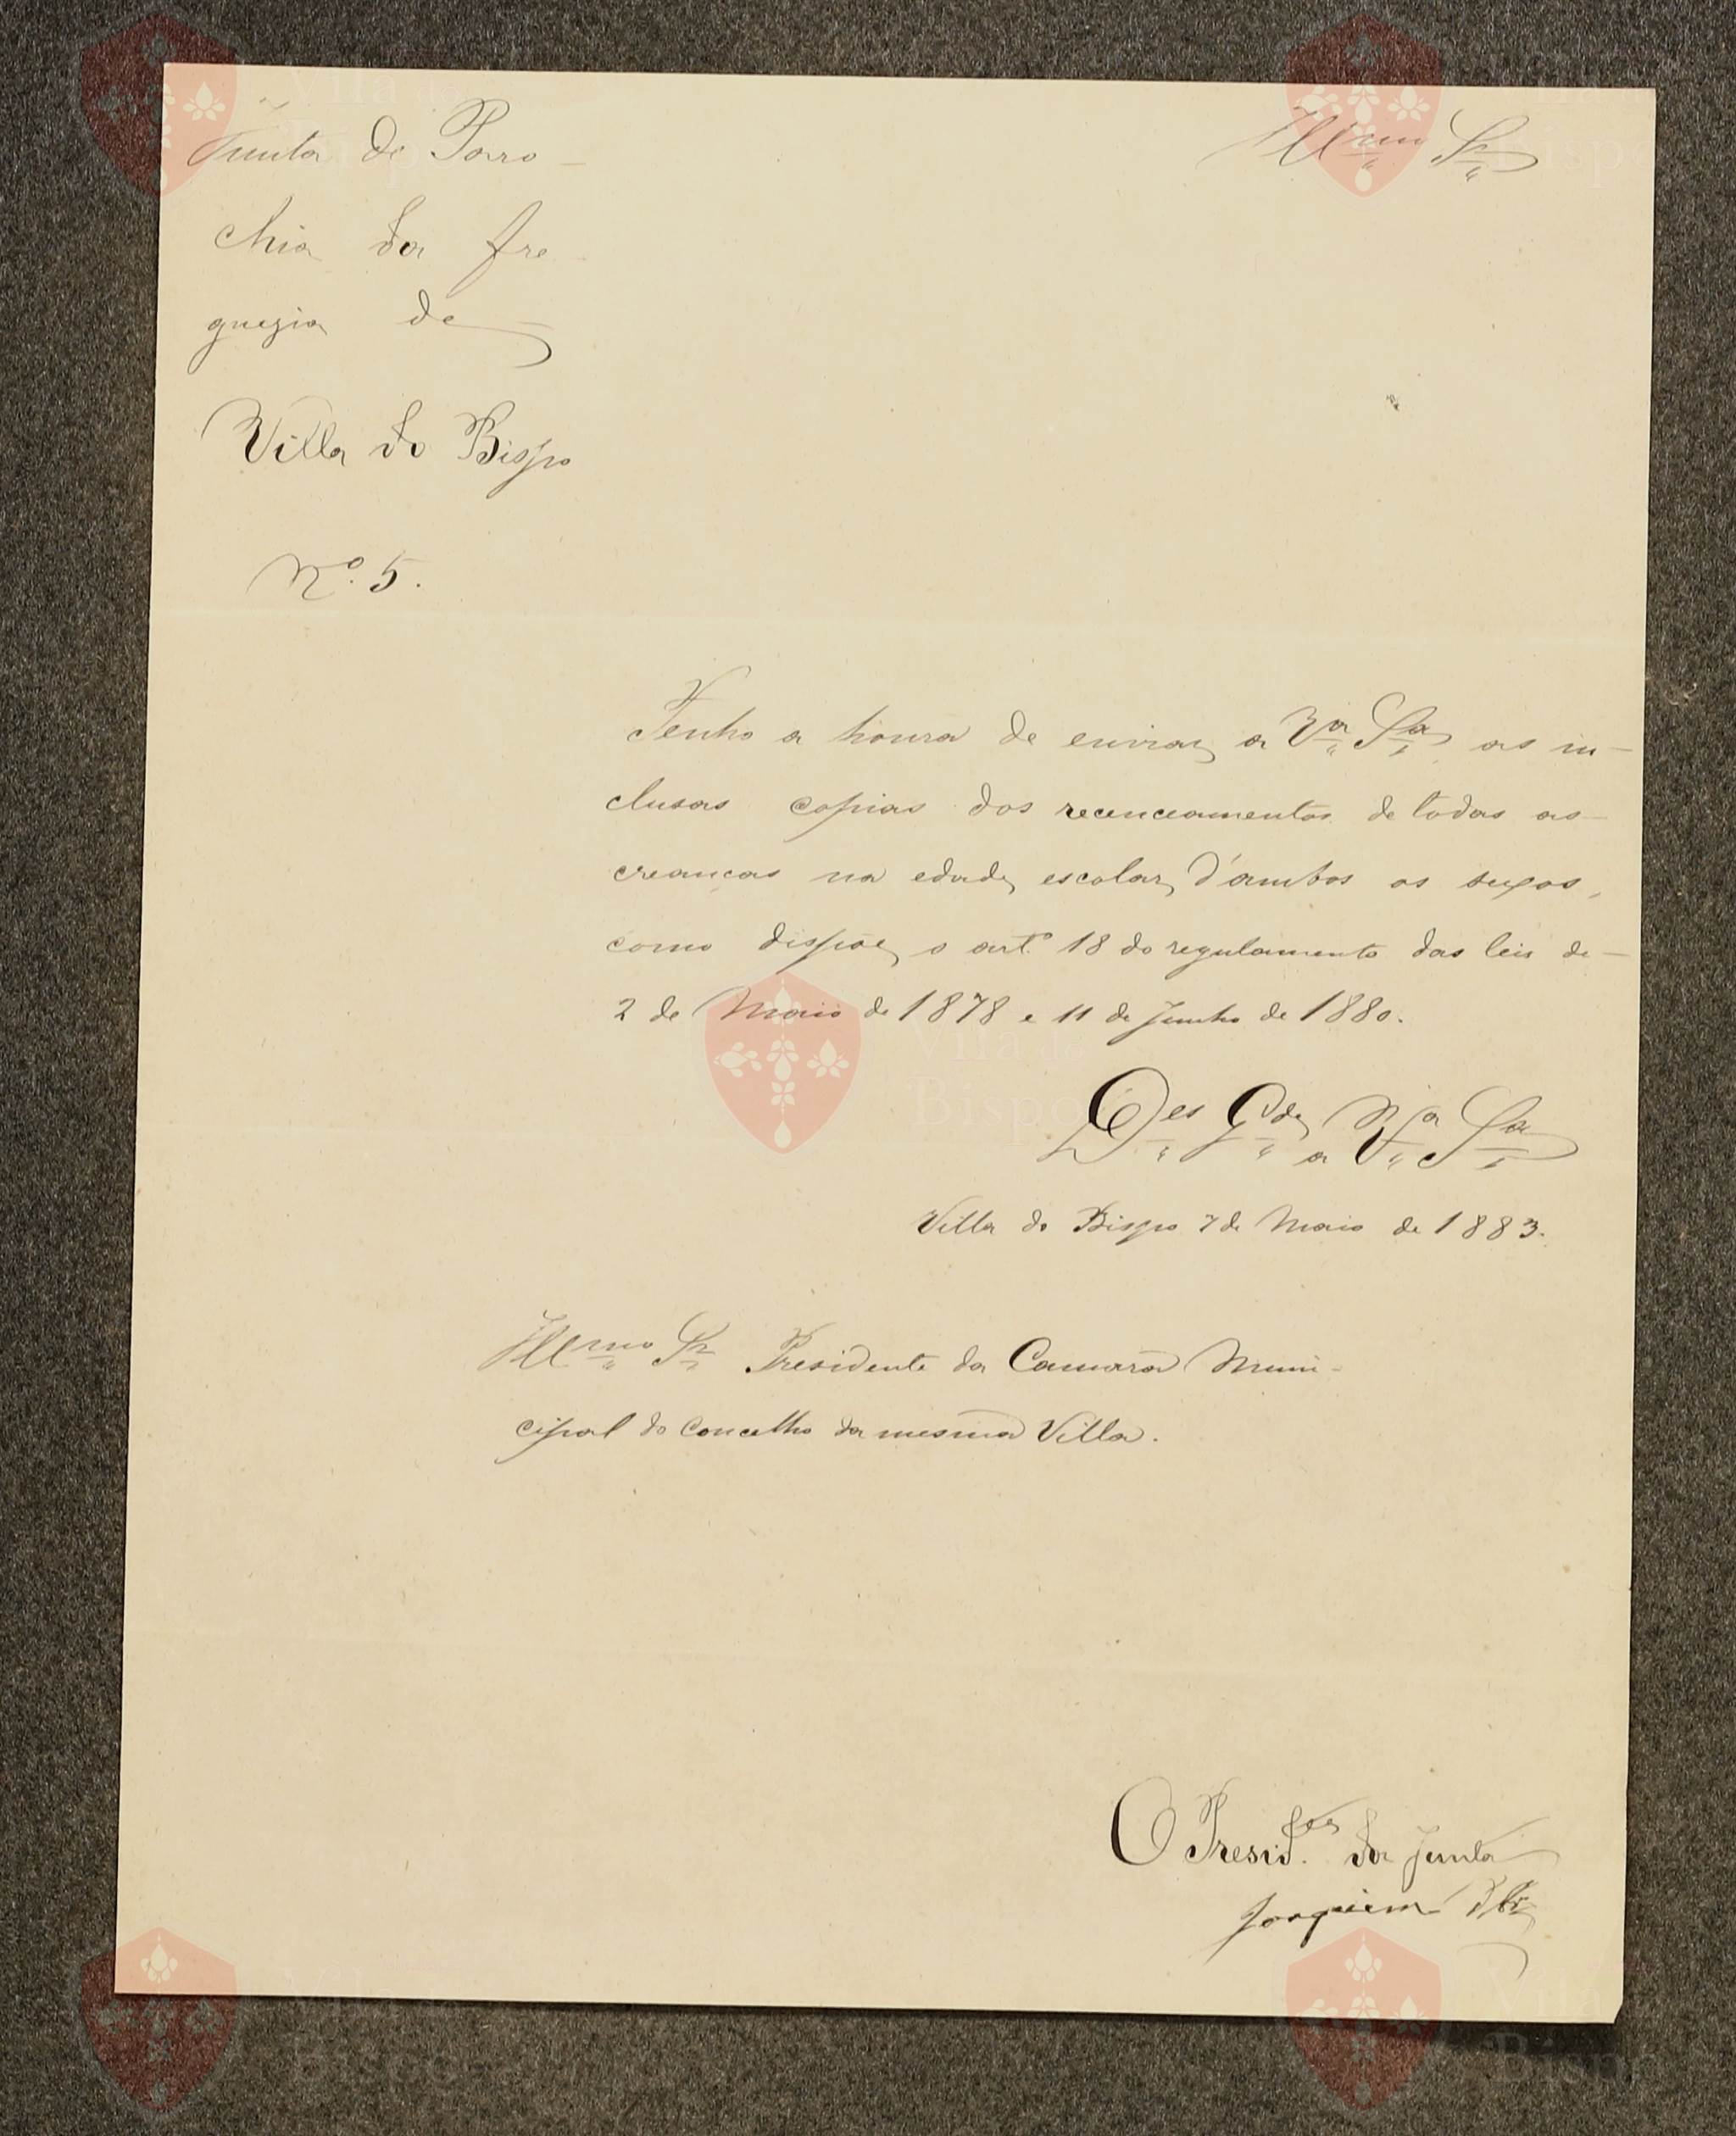 Junta de Parro-
chia da fre-
guezia de
Villa do Bispo
Nº. 5.
Illmo Sr.
Tenho a honra de enviar a Va. Sa. as in-
clusas copias dos recenceamentos de todas as
creanças na edade escolar, d'ambos os sexos,
como dispõe o artº 18 do regulamento das leis de
2 de Maio de 1878 e 11 de Junho de 1880.
Des Gde a Va Sa
Villa do Bispo 7 de Maio de 1883.
Illmo Sr. Presidente da Camara Muni-
cipal do Concelho da mesma Villa.
O Presid.te da Junta
Joaquiem
Vila do
Bispo